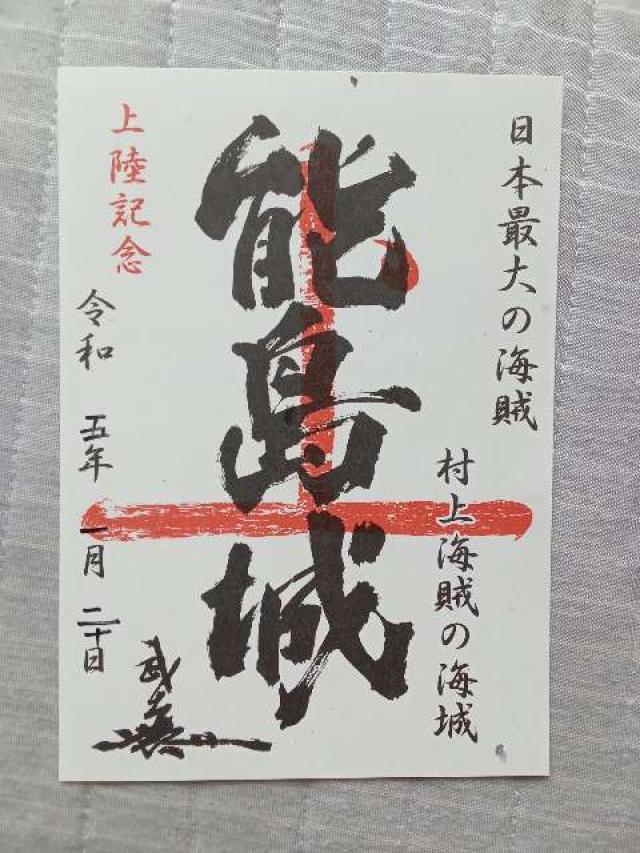 日本最大の海賊
村上海賊の海城
能島城
上陸記念
令和 五年 一月 二十日